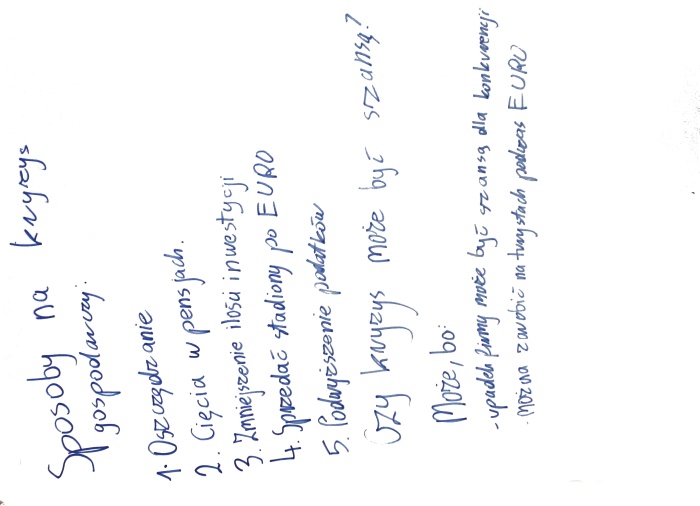 Sposoby na kryzys
gospodarczy:
1. Oszczędzanie
2. Cięcia w pensjach.
3. Zmniejszenie ilości inwestycji
4. Sprzedać stadiony po EURO
5. Podwyższenie podatków
Czy kryzys może być szansą?
Może, bo:
- upadek firmy może być szansą dla konkurencji
- można zarobić na turystach podczas EURO